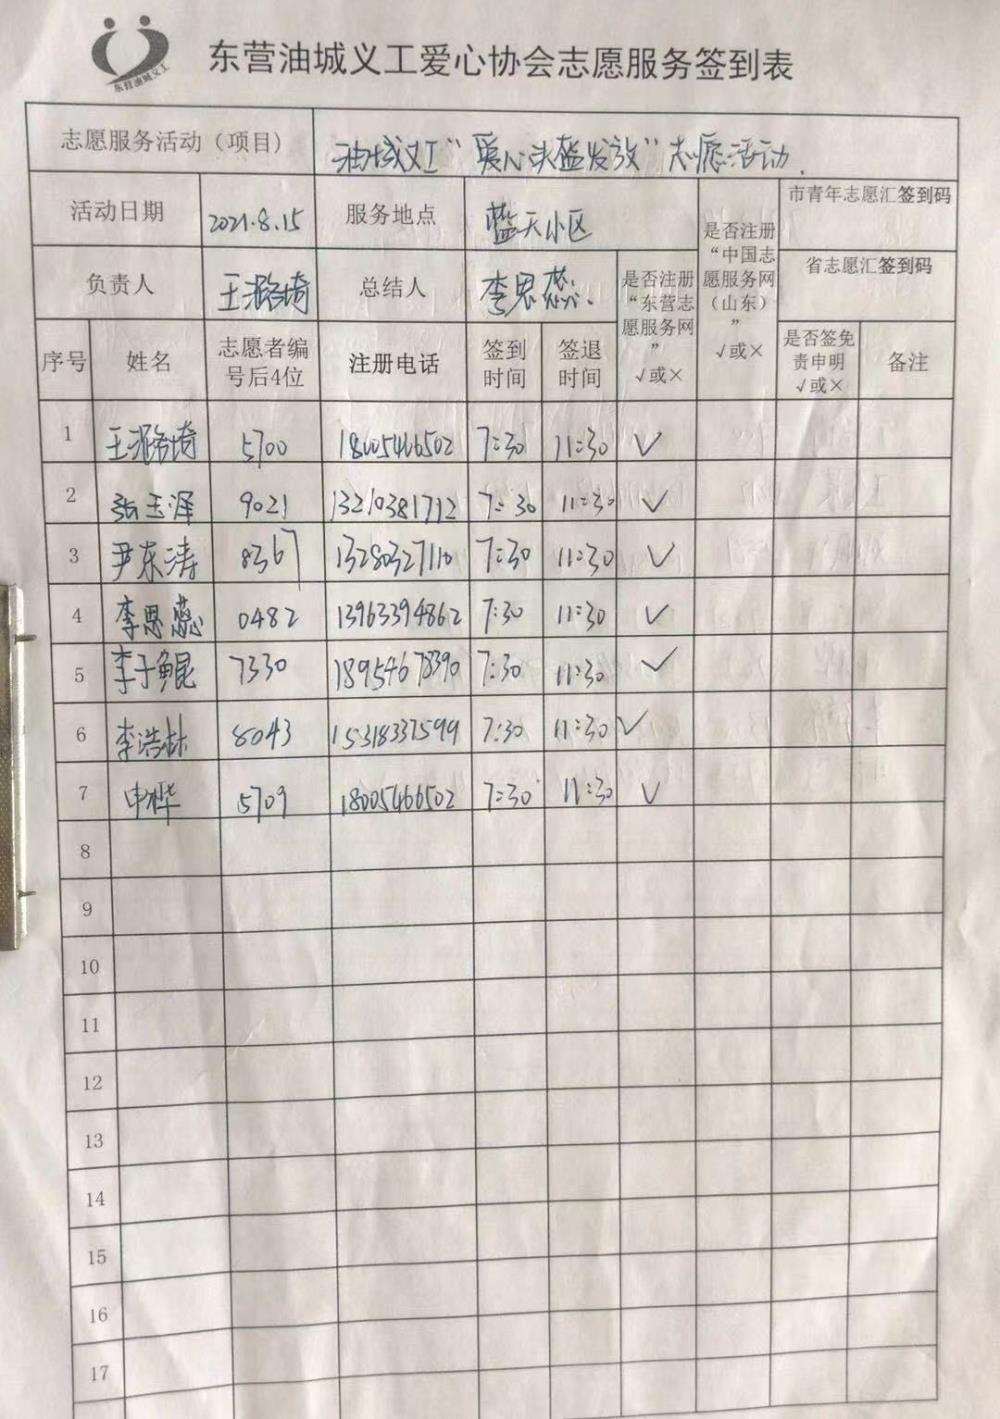 东营油城义工
东营油城义工爱心协会志愿服务签到表
志愿服务活动（项目） 油城义工“爱心头盔发放”志愿活动.
活动日期 2021.8.15 服务地点 蓝天小区 是否注册“中国志愿服务网（山东）” √或× 市青年志愿汇签到码
负责人 王潞琦 总结人 李思蕊. 是否注册“东营志愿服务网” √或× 省志愿汇签到码
序号 姓名 志愿者编号后4位 注册电话 签到时间 签退时间 是否签免责申明 √或× 备注
1 王潞琦 5700 18005466502 7:30 11:30 √
2 张玉泽 9021 13210381712 7:30 11:30 √
3 尹东涛 8367 13280327110 7:30 11:30 √
4 李思蕊 0482 13963394862 7:30 11:30 √
5 李子鲲 7330 18954678390 7:30 11:30 √
6 李浩林 8043 15318337599 7:30 11:30 √
7 申桦 5709 18005466502 7:30 11:30 √
8
9
10
11
12
13
14
15
16
17